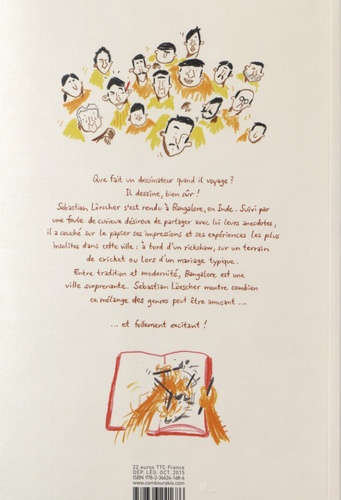 Que fait un dessinateur quand il voyage ?
Il dessine, bien sûr !
Sebastian Lörscher s'est rendu à Bangalore, en Inde. Suivi par
une foule de curieux désireux de partager avec lui leurs anecdotes,
il a couché sur le papier ses impressions et ses expériences les plus
insolites dans cette ville : à bord d'un rickshaw, sur un terrain
de cricket ou lors d'un mariage typique.
Entre tradition et modernité, Bangalore est une
ville surprenante. Sebastian Lörscher montre combien
ce mélange des genres peut être amusant ...
... et follement excitant !
22 euros TTC France
DÉP. LÉG. OCT. 2015
ISBN 978-2-36624-168-6
www.cambourakis.com